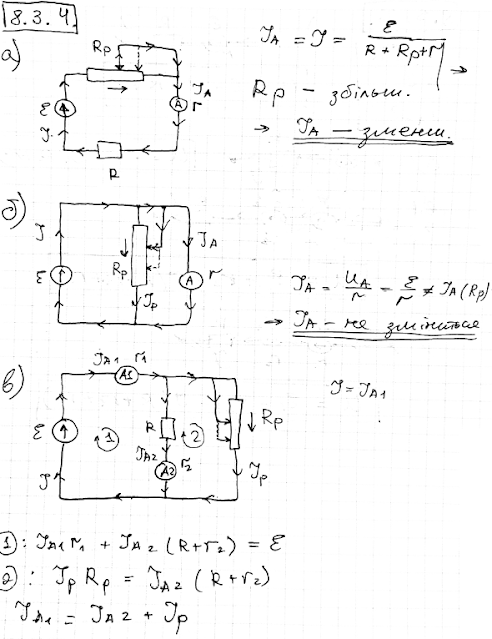 8.3.4.
а)
Rр
ℰ
I
R
I_A
A
r
I_A = I = ℰ / (R + Rр + r)
Rр – збільш.
→ I_A – зменш.
б)
I
ℰ
Rр
Iр
I_A
A
r
I_A = U_A / r = ℰ / r ≠ I_A(Rр)
→ I_A – не зміниться
в)
I_A1 r₁
A1
ℰ
I
1
R
I_A2
A2
r₂
2
Rр
Iр
I = I_A1
1: I_A1 r₁ + I_A2 (R + r₂) = ℰ
2: Iр Rр = I_A2 (R + r₂)
I_A1 = I_A2 + Iр